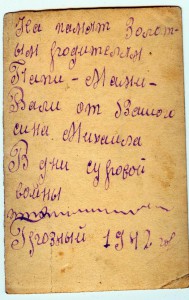 На памят Золот-
ым родителям.
Папи - Мами -
Вали от Вашого
сина Михаила
В дни суровой
войны
Грозный 1942 год